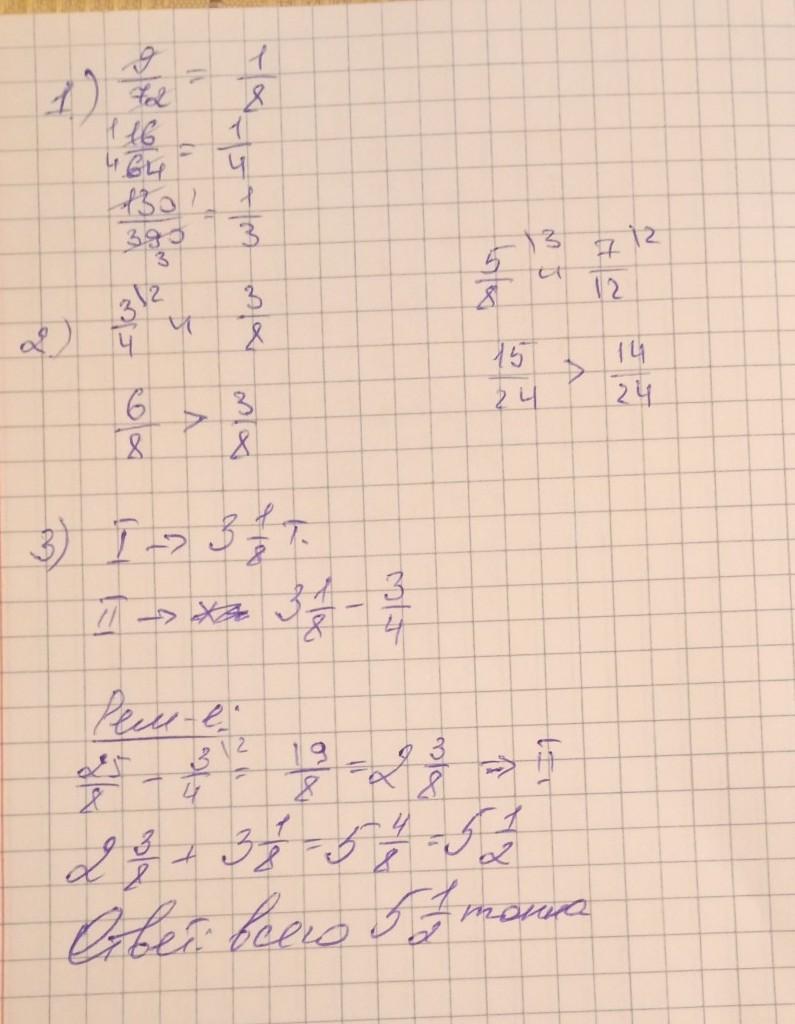 1) 9/72 = 1/8
1 4 16/64 = 1/4
130/390 1 3 = 1/3
2) 3/4 \2 и 3/8
6/8 > 3/8
5/8 \3 и 7/12 \2
15/24 > 14/24
3) I → 3 1/8 т.
II → 3 1/8 - 3/4
Реш-е:
25/8 - 3/4 \2 = 19/8 = 2 3/8 ⇒ II
2 3/8 + 3 1/8 = 5 4/8 = 5 1/2
Ответ: всего 5 1/2 тонна